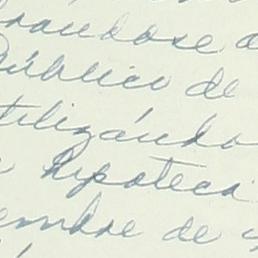 andose
Público de
tilizándo
hipoteca
embre de